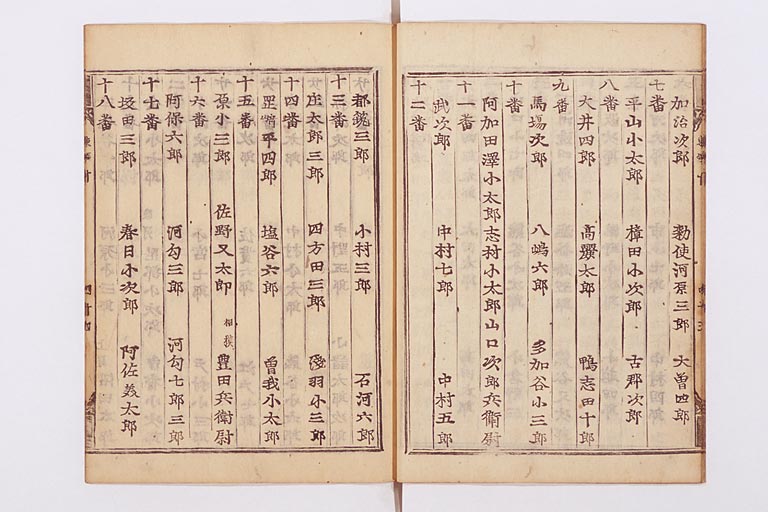 加治次郎 勅使河原三郎 大曽四郎
七番
平山小太郎 樟田小次郎 古郡次郎
八番
大井四郎 高麗太郎 鴨志田十郎
九番
馬場次郎 八嶋六郎 多加谷小三郎
十番
阿加田澤小太郎 志村小太郎 山口次郎兵衛尉
十一番
武次郎 中村七郎 中村五郎
十二番
都筑三郎 小村三郎 石河六郎
十三番
庄太郎三郎 四方田三郎 羽小三郎
十四番
平四郎 塩谷六郎 曽我小太郎
十五番
原小三郎 佐野又太郎 相模 豊田兵衛尉
十六番
阿保六郎 河匂三郎 河匂七郎三郎
十七番
坂田三郎 春日小次郎 阿佐美太郎
十八番